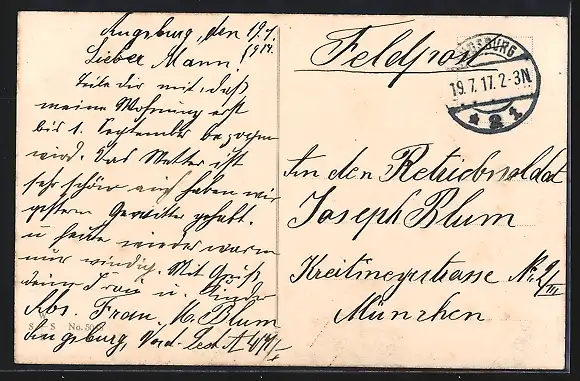 Augsburg, den 19.7.
1917.
Lieber Mann!
Teile dir mit, daß
meine Wohnung erst
bis 1. September bezogen
wird. Das Wetter ist
sehr schön auch haben wir
gestern Gewitter gehabt.
u heute wieder warm
nur windig. Mit Gruß
deine Frau u. Kinder
Abs. Frau M. Blum
Augsburg,
S S No. 50
Feldpost
AUGSBURG
19.7.17. 2-3N.
* 2 1
An den
Joseph Blum
Nr. 2/III
München